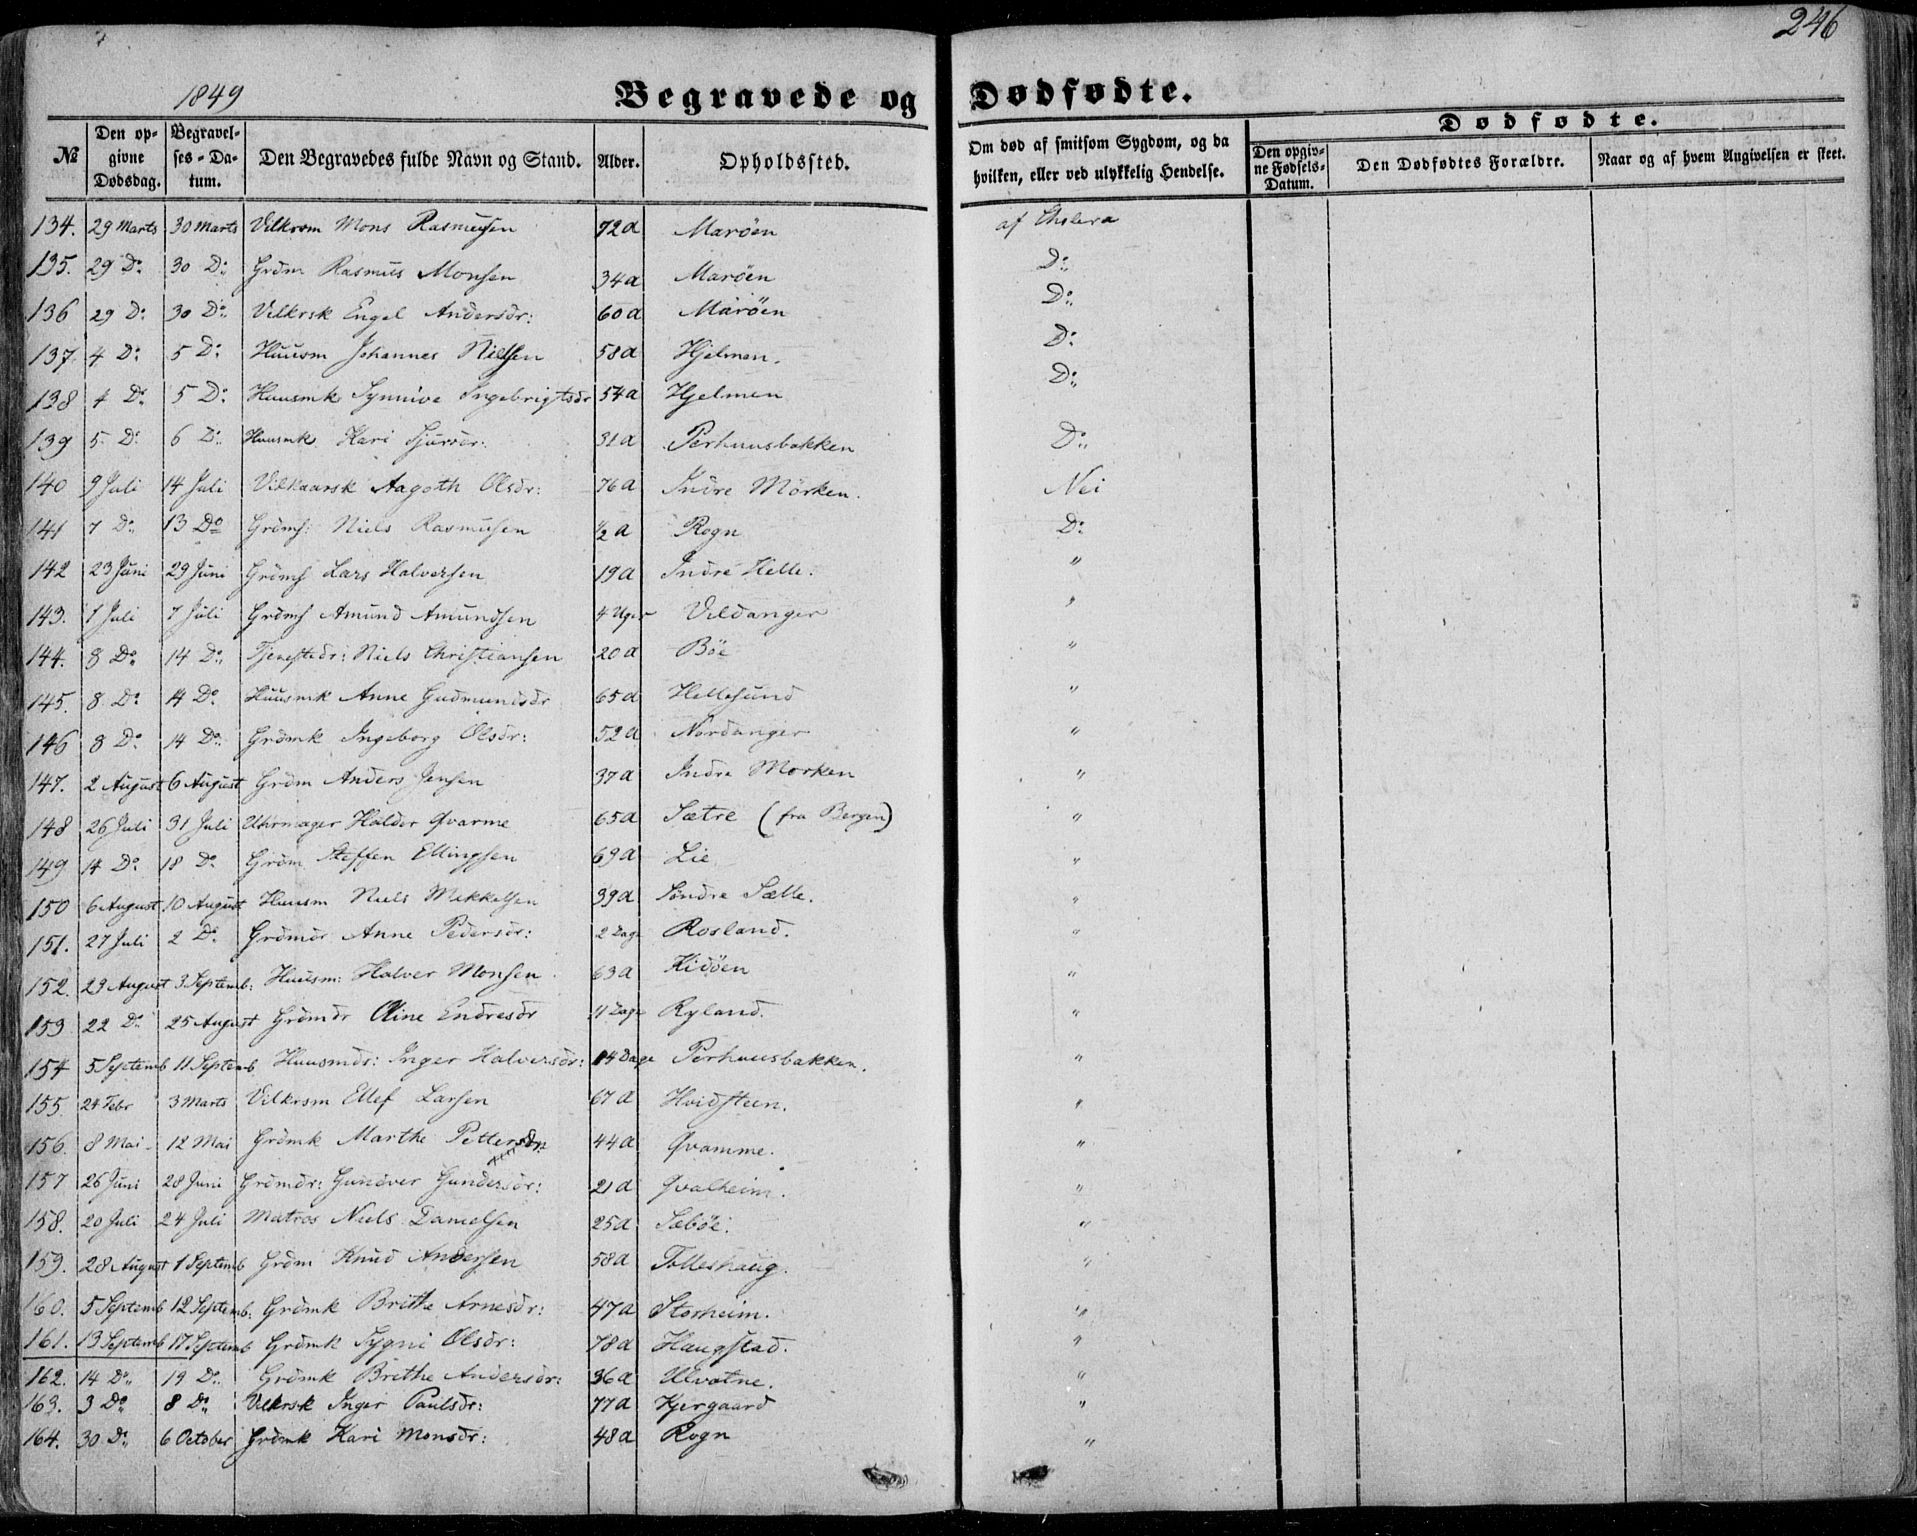 246
1849
Begravede og Dødfødte.
№ | Den opgivne Dødsdag. | Begravelses-Datum. | Den Begravedes fulde Navn og Stand. | Alder. | Opholdssted. | Om død af smitsom Sygdom, og da hvilken, eller ved ulykkelig Hendelse. | Dødfødte. | Den opgivne Fødsels-Datum. | Den Dødfødtes Forældre. | Naar og af hvem Angivelsen er skeet.
134. 29 Marts 30 Marts Vilkrsm Mons Rasmussen 72a Marøen af Cholera
135. 29 Do: 30 D: Grdm Rasmus Monsen 34a Marøen D:
136 29 D: 30 Do: Vilkrsk Engel Andersdr: 60a Marøen D:
137. 4 D: 5 D: Huusm Johannes Nielsen 58a Hjelmen. D:
138 4 Do: 5 D: Huusmk Synnive Ingebrigtsdr 54a Hjelmen D:
139 5 D: 6 D: Huusmk Kari Sjursdr: 31a Perhuusbakken D:
140 9 Juli 14 Juli Vilkaarsk Aagoth Olsdr: 76a Indre Mörken. Nei
141 7 D: 13 Do Grdms: Niels Rasmussen ½a Rogn D:
142 23 Juni 29 Juni Grdms Lars Halversen 19a Indre Helle. "
143. 1 Juli 7 Juli Grdms Amund Amundsen 4 Uger Vildanger "
144. 8 Do: 14 D: Tjenestedr: Niels Christiansen 20a Böe "
145. 8 D: 14 Do: Huusmk Anne Gudmundsdr 65a Hellesund "
146 8 Do 14 Do: Grdmk Ingeborg Olsdr: 52a Nordanger "
147. 2 August 6 August Grdm Anders Jensen 37a Indre Morken "
148 26 Juli 31 Juli Uhrmager Haldor Qvarme 65a Sætre (fra Bergen) "
149 14 Do 18 Do Grdm Steffen Ellingsen 69a Lie "
150 6 August 10 August Huusm Niels Mikkelsen 39a Søndre Sælle. "
151. 27 Juli 2 D: Grdmdr Anne Pedersdr: 2 Dage Rosland. "
152. 23 August 3 Septemb: Huusm: Halver Monsen 63a Kidöen "
153 22 D: 25 August Grdmdr Oline Endresdr 11 Dage Ryland. "
154 5 Septemb 11 Septemb Huusmdr: Inger Halversdr: 14 Dage Perhuusbakken. "
155. 24 Febr 3 Marts Vilkrsm Ellef Larsen 67a Hvidsteen. "
156. 8 Mai 12 Mai Grdmk Marthe Pettersdr 44a Qvamme. "
157 26 Juni 28 Juni Grdmdr: Gundver Gundersdr: 21a Qvalheim. "
158. 20 Juli 24 Juli Matros Niels Danielsen 25a Sæböe. "
159. 28 August 1 Septemb Grdm Knud Andersen 58a Tolleshaug. "
160. 5 Septemb 12 Septemb: Grdmk Brithe Arnesdr: 47a Storheim. "
161. 13 Septemb 17 Septemb Grdmk Sygni Olsdr: 78a Haugstad. "
162. 14 Do: 19 D: Grdmk Brithe Andersdr: 36a Ulvatne. "
163. 3 Do 8 D: Vilkrsk Inger Paulsdr: 77a Kjergaard "
164. 30 D: 6 October Grdmk Kari Monsdr: 48a Rogn "